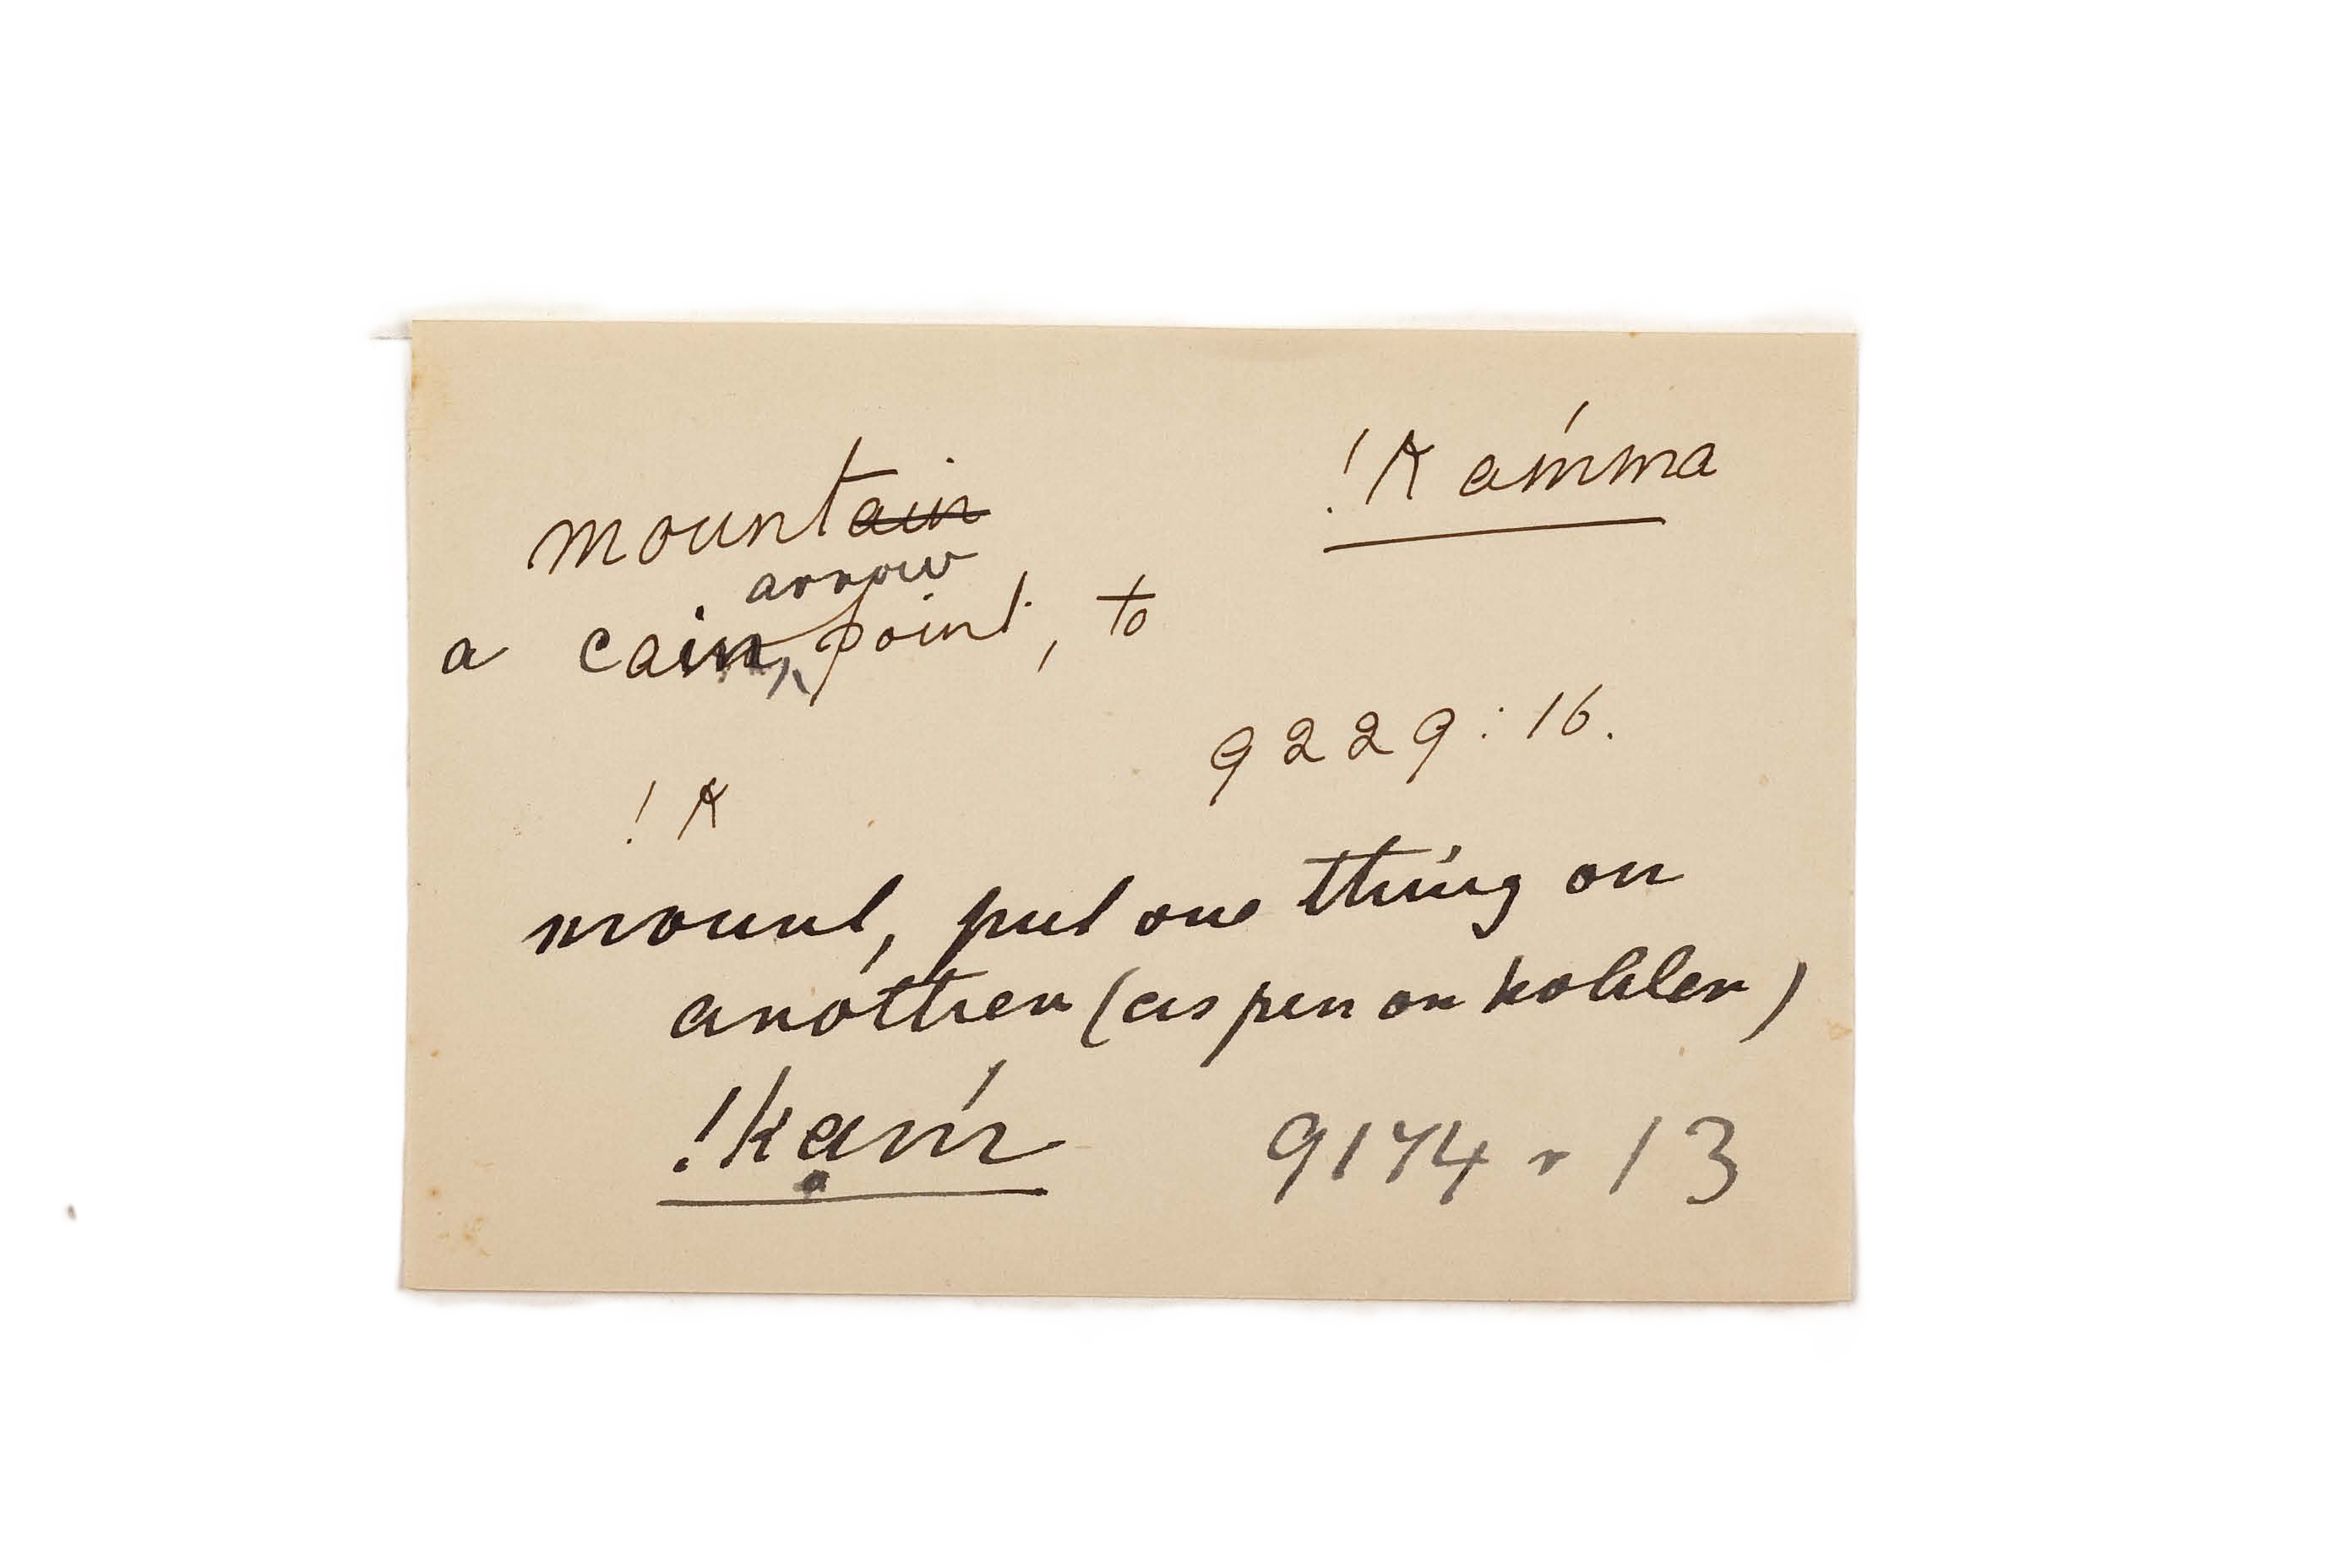 !kaḿma
mount
arrow
a cain point, to
9229:16.
!k
mount, put one thing on
another (as pen on holder)
!kaḿ 9174 r 13